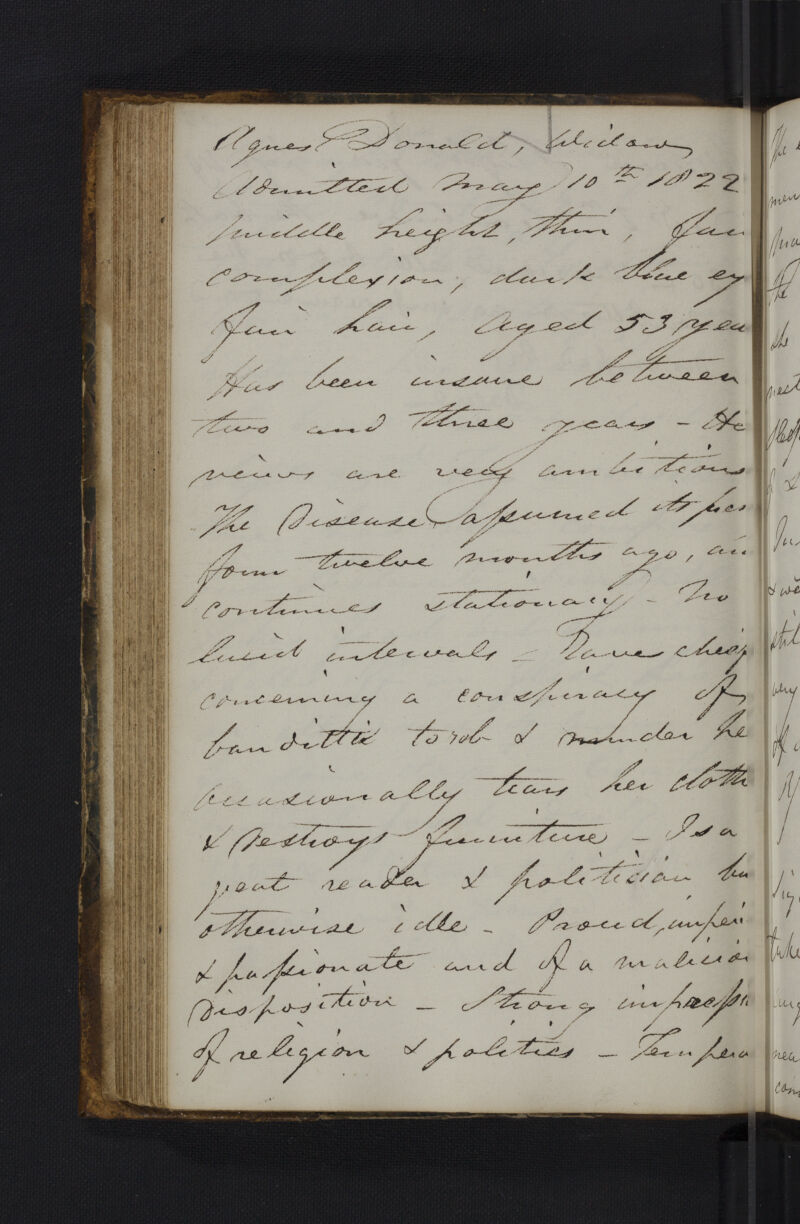 Agnes Donald, Widow
Admitted May 10th 1822
middle height, thin, fair
complexion, dark blue ey
fair hair, Aged 53 yea
Has been insane between
two and three years - He
views are very ambitious
The Disease assumed its pres
form twelve months ago, an
continues stationary - No
lucid intervals - Raves chiefly
concerning a conspiracy of
bandittie to rob & murder he
occasionally tears her cloth
& Destroys furniture - Is a
great reader & politician bu
otherwise idle - Proud, imperi
& passionate and of a maliciou
Disposition - Strong impressi
of religion & politics - Tempera
The
men
The
she
nest
& we
still
very
take
nea